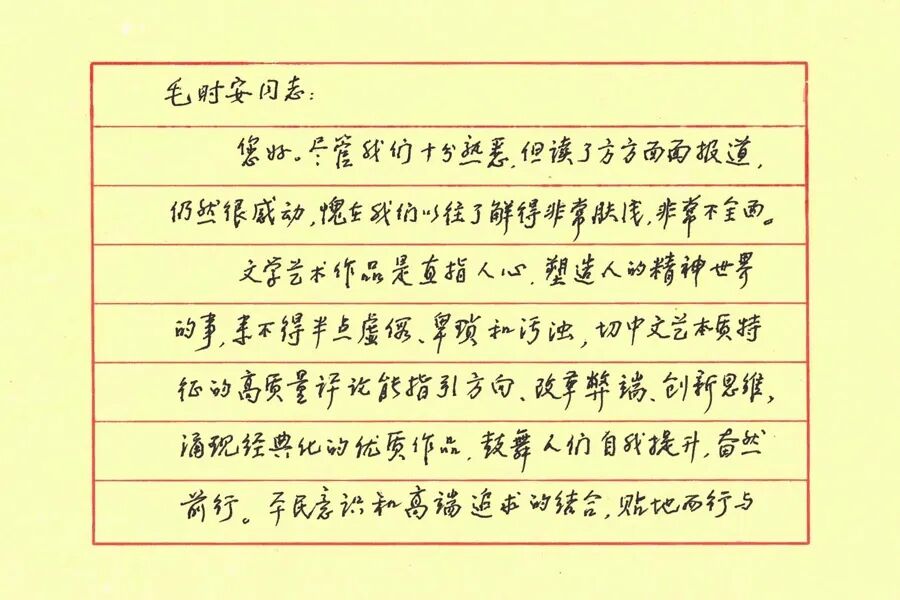 毛时安同志：
您好。尽管我们十分熟悉，但读了方方面面报道，
仍然很感动，愧在我们以往了解得非常肤浅，非常不全面。
文学艺术作品是直指人心，塑造人的精神世界
的事，来不得半点虚假、卑琐和污浊，切中文艺本质特
征的高质量评论能指引方向、改革弊端、创新思维，
涌现经典化的优质作品，鼓舞人们自我提升，奋然
前行。平民意识和高端追求的结合，贴地而行与